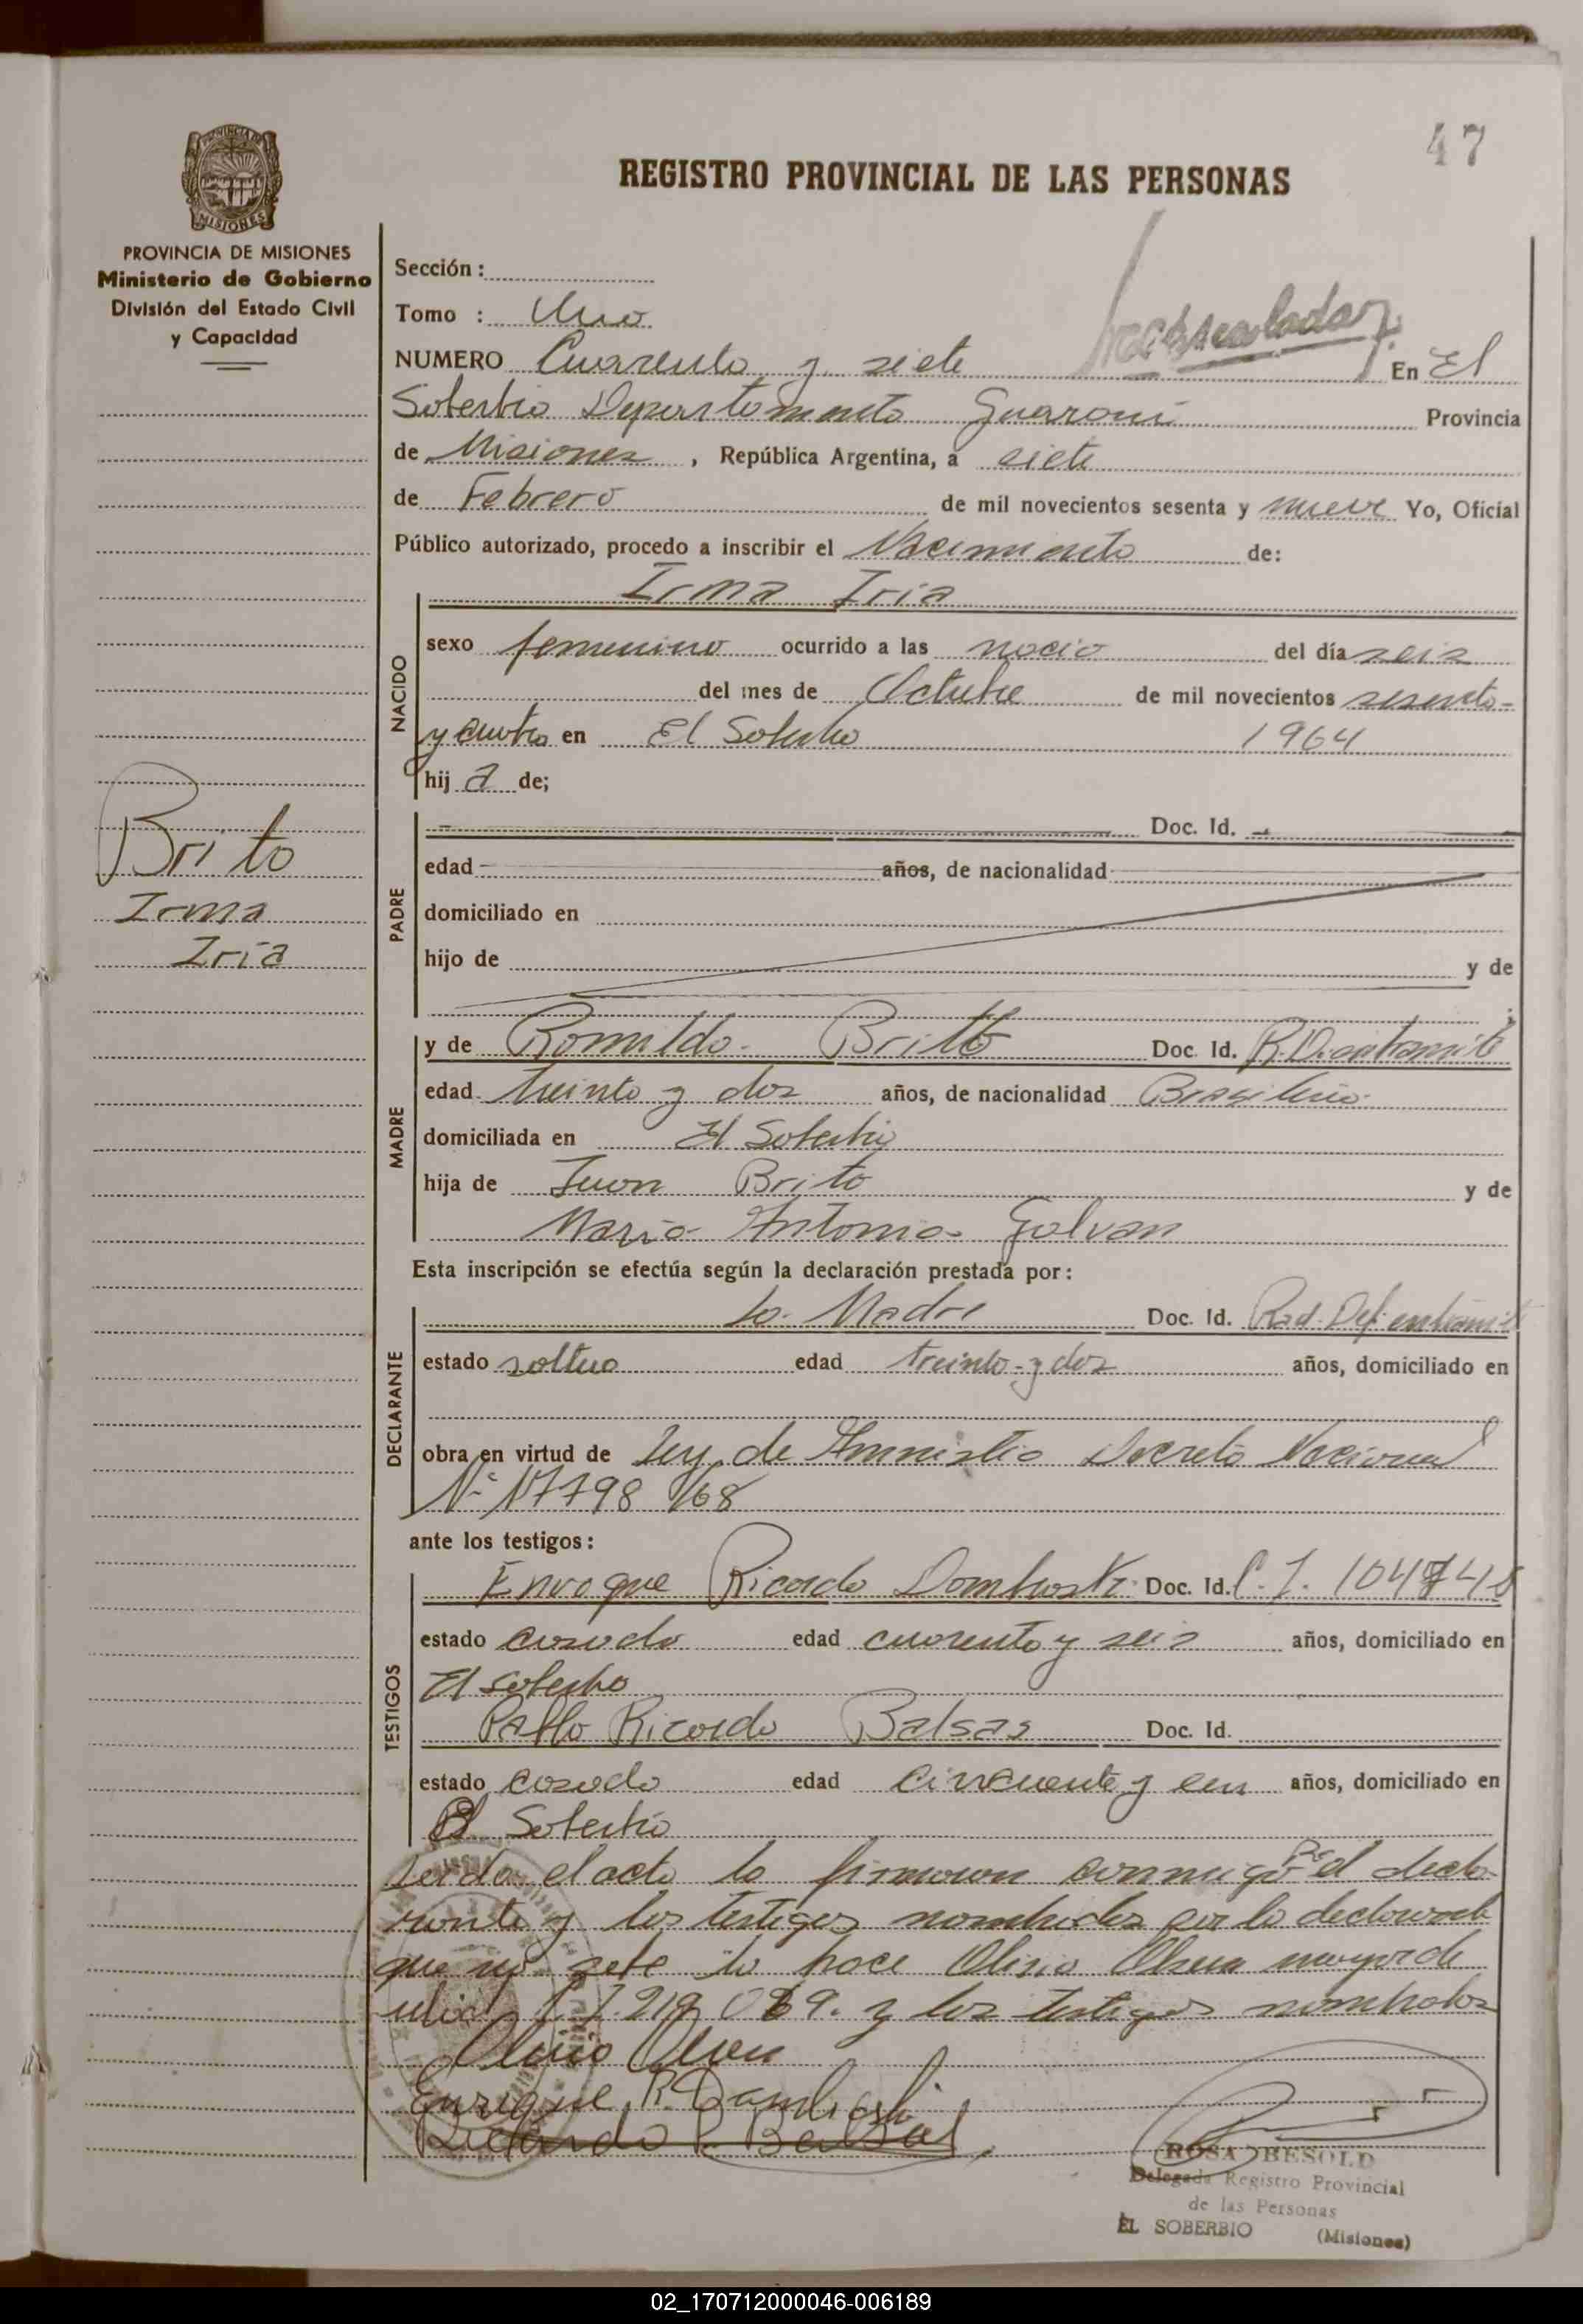 47
REGISTRO PROVINCIAL DE LAS PERSONAS
PROVINCIA DE MISIONES
Ministerio de Gobierno
División del Estado Civil
y Capacidad
Sección :
Tomo : Uno
NUMERO Cuarenta y siete En El
Soberbio Departamento Guaraní Provincia
de Misiones , República Argentina, a siete
de Febrero de mil novecientos sesenta y nueve Yo, Oficial
Público autorizado, procedo a inscribir el Nacimiento de:
Irma Iria
NACIDO
sexo femenino ocurrido a las del día seis
del mes de Octubre de mil novecientos sesenta
y cuatro en El Soberbio 1964
hij a de;
Brito
Irma
Iria
PADRE
Doc. Id.
edad años, de nacionalidad
domiciliado en
hijo de y de
MADRE
y de Romilda Britto Doc. Id. R.D. en tramite
edad treinta y dos años, de nacionalidad Brasileña
domiciliada en El Soberbio
hija de Juan Brito y de
Maria Antonia Galvan
Esta inscripción se efectúa según la declaración prestada por:
DECLARANTE
La Madre Doc. Id. Rad. Def. en tramite
estado soltera edad treinta y dos años, domiciliado en
obra en virtud de Ley de Amnistia Decreto Nacional
Nº 17798/68
ante los testigos:
TESTIGOS
Enroque Ricardo Dombroski Doc. Id. C.I.
estado casado edad cuarenta y seis años, domiciliado en
El Soberbio
Pablo Ricardo Balsas Doc. Id.
estado casado edad cincuenta y un años, domiciliado en
El Soberbio
Leida el acta la firmaron conmigo el decla-
rante y los testigos nombrados por la declarante
que no sabe lo hace Olisio mayor de
y los testigos nombrados
Enrique R. Dambroski
Ricardo P. Balsas
ROSA BESOLD
Delegada Registro Provincial
de las Personas
EL SOBERBIO (Misiones)
02_170712000046-006189